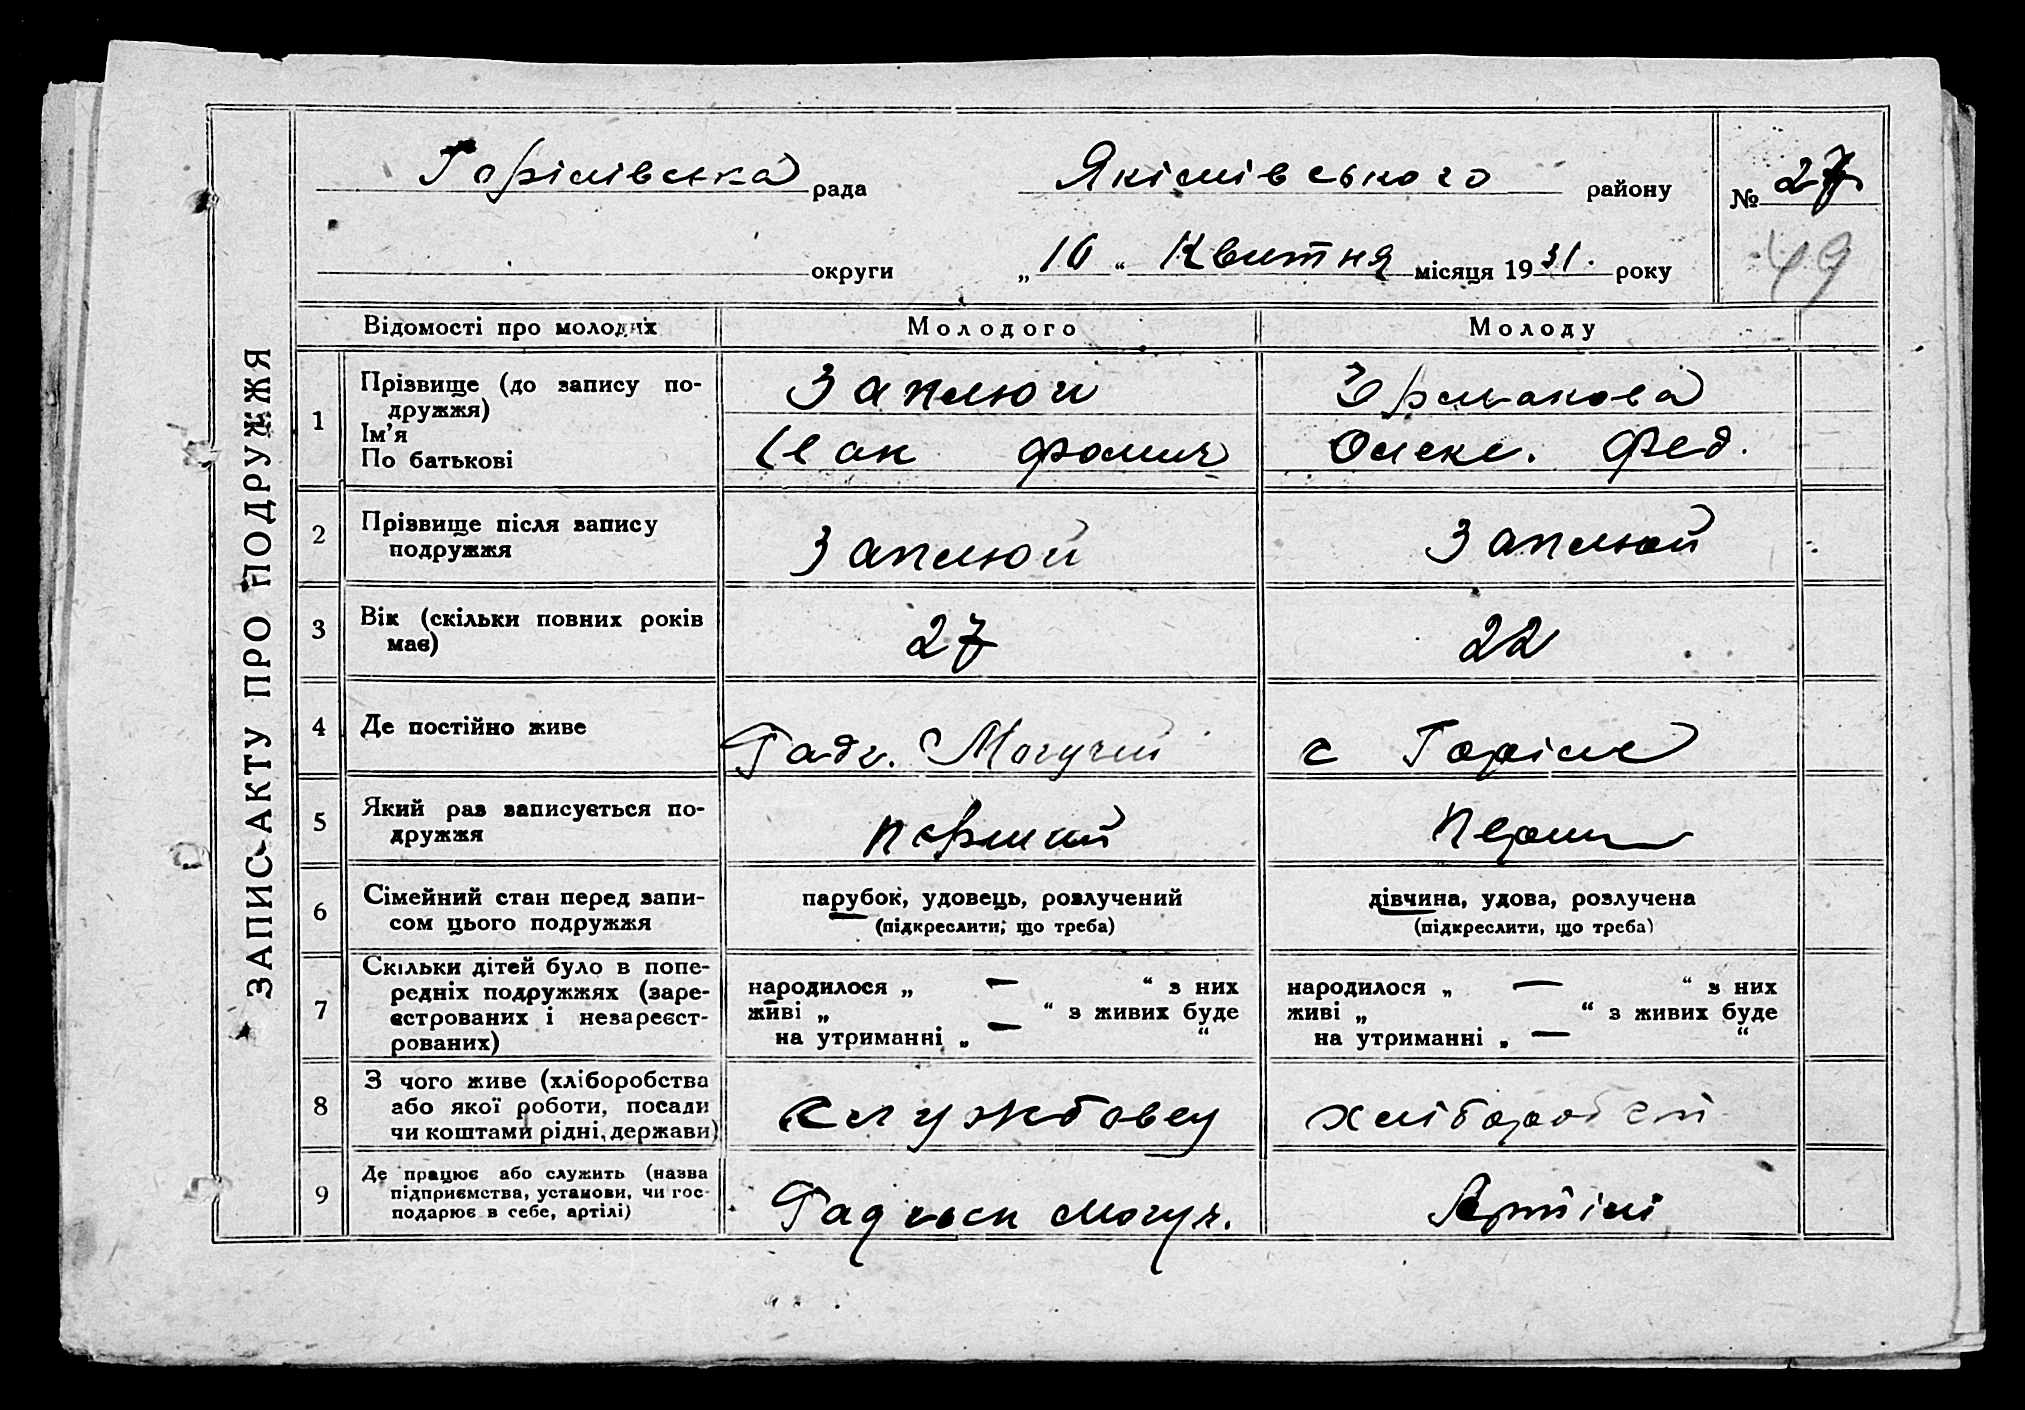 ЗАПИС АКТУ ПРО ПОДРУЖЖЯ
Горілівська рада Якімівського району № 27
округи „16“ Квитня місяця 1931. року 49
Відомості про молодих Молодого Молоду
1 Прізвище (до запису по-
дружжя) Заплюй Єрмакова
Ім'я
По батькові Іван Фомич Олекс. Фед.
2 Прізвище після запису
подружжя Заплюй Заплюй
3 Вік (скільки повних років
має) 27 22
4 Де постійно живе Радг. Могучий с Горіле
5 Який раз записується по-
дружжя перший перш
6 Сімейний стан перед запи-
сом цього подружжя
парубок, удовець, розлучений
(підкреслити, що треба)
дівчина, удова, розлучена
(підкреслити, що треба)
7 Скільки дітей було в попе-
редніх подружжях (заре-
єстрованих і незареєст-
рованих)
народилося „ — “ з них
живі „ “ з живих буде
на утриманні „ — “
народилося „ — “ з них
живі „ “ з живих буде
на утриманні „ — “
8 З чого живе (хліборобства
або якої роботи, посади
чи коштами рідні, держави) службовец хлібороб
9 Де працює або служить (назва
підприємства, установи, чи гос-
подарює в себе, артілі) Могуч. Артілі